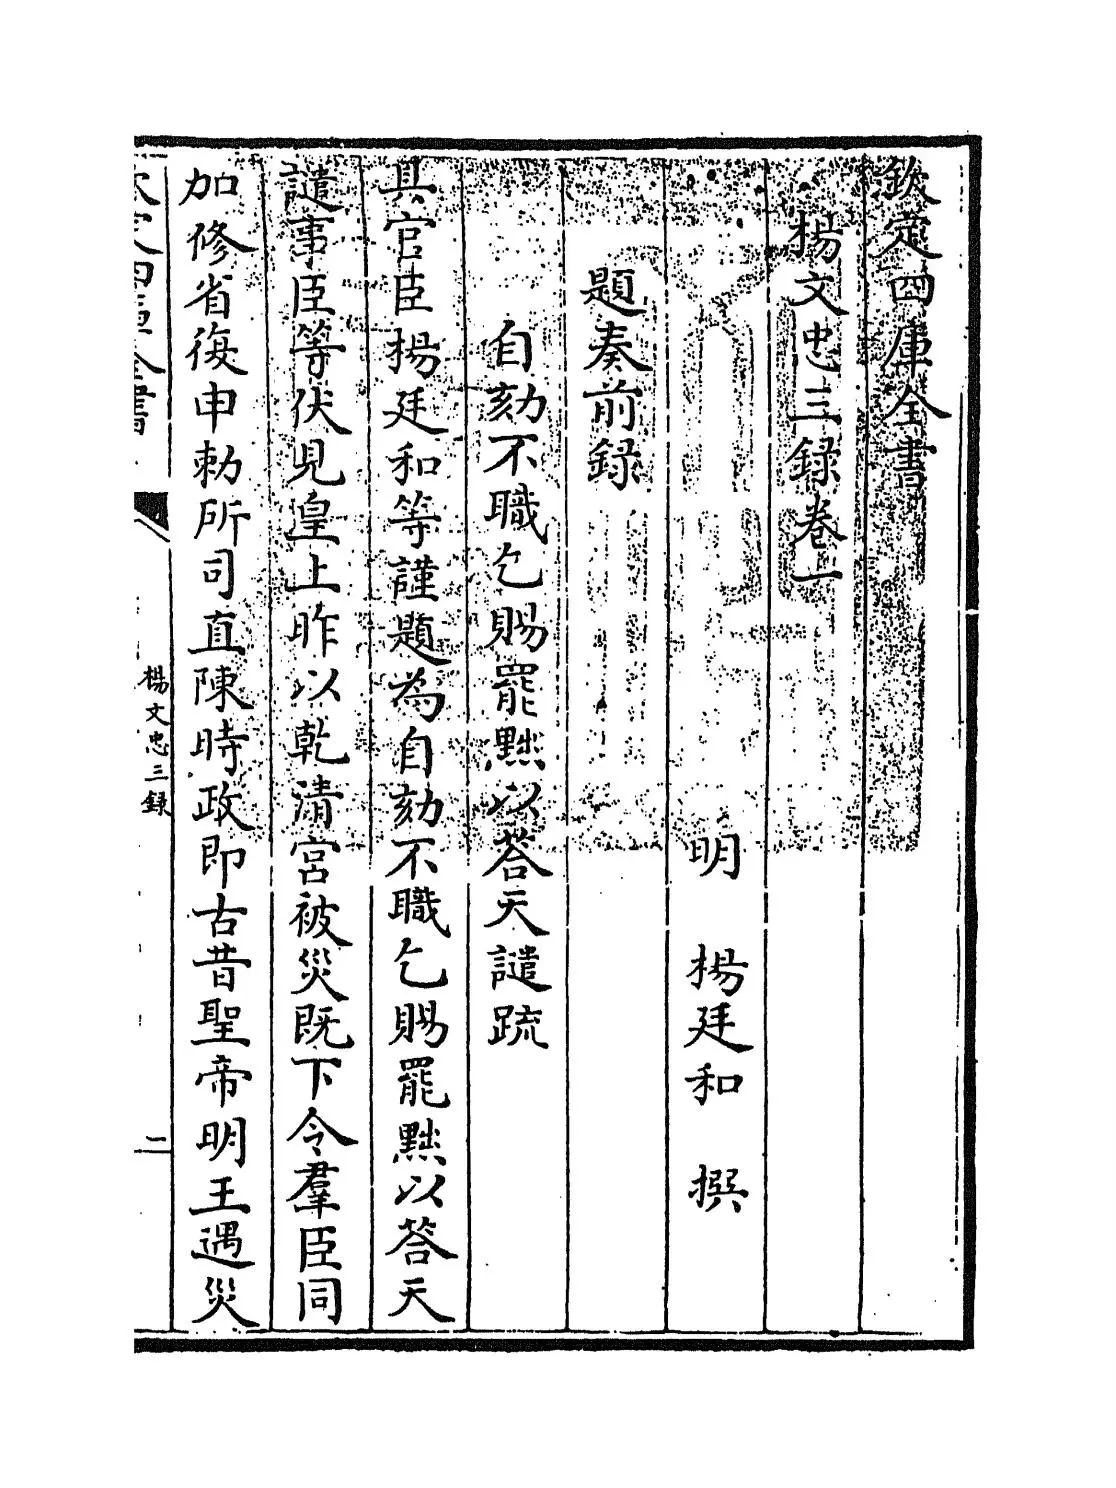 欽定四庫全書
楊文忠三錄卷一
明 楊廷和 撰
題奏前錄
自劾不職乞賜罷黜以答天譴疏
具官臣楊廷和等謹題為自劾不職乞賜罷黜以答天
譴事臣等伏見皇上昨以乾清宮被災既下令羣臣同
加修省復申勅所司直陳時政即古昔聖帝明王遇災
欽定四庫全書
楊文忠三錄
二